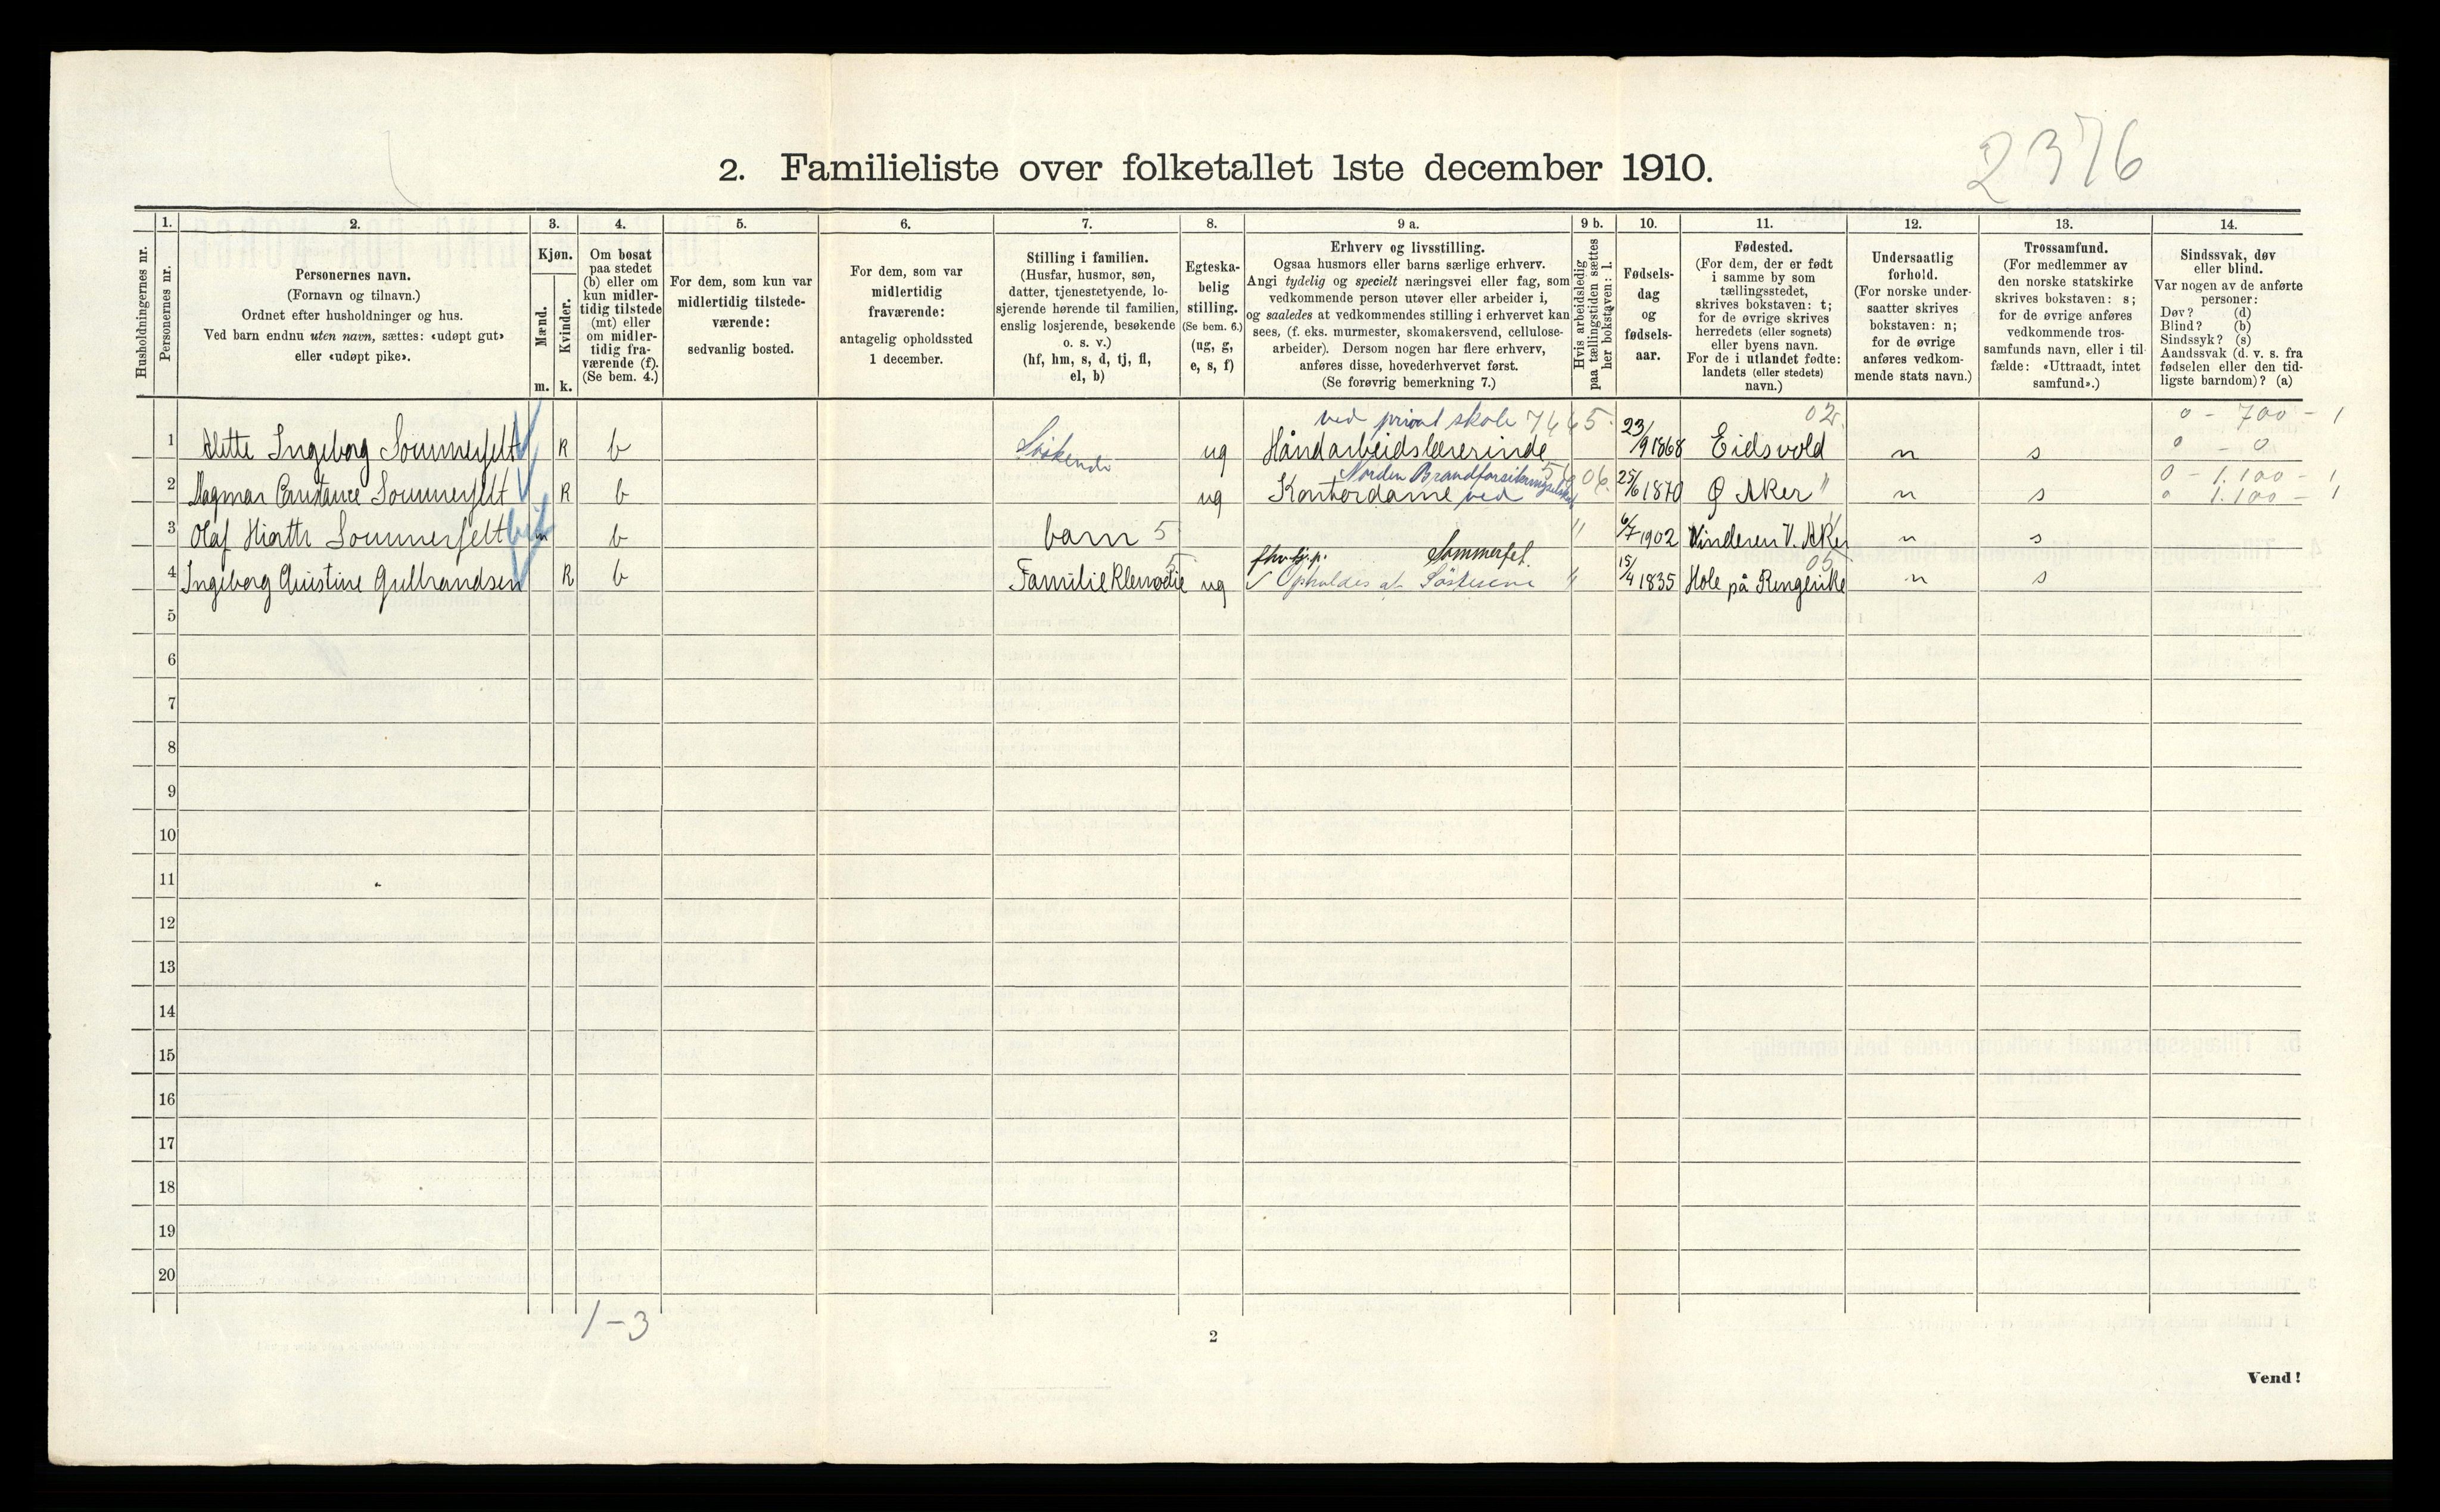 2376
2. Familieliste over folketallet 1ste december 1910.
Husholdningernes nr.
1. Personernes nr.
2.
Personernes navn.
(Fornavn og tilnavn.)
Ordnet efter husholdninger og hus.
Ved barn endnu uten navn, sættes: «udøpt gut»
eller «udøpt pike».
3.
Kjøn.
Mænd. Kvinder.
m. k.
4.
Om bosat
paa stedet
(b) eller om
kun midler-
tidig tilstede
(mt) eller
om midler-
tidig fra-
værende (f).
(Se bem. 4.)
5.
For dem, som kun var
midlertidig tilstede-
værende:
sedvanlig bosted.
6.
For dem, som var
midlertidig
fraværende:
antagelig opholdssted
1 december.
7.
Stilling i familien.
(Husfar, husmor, søn,
datter, tjenestetyende, lo-
sjerende hørende til familien,
enslig losjerende, besøkende
o. s. v.)
(hf, hm, s, d, tj, fl,
el, b)
8.
Egteska-
belig
stilling.
(Se bem. 6.)
(ug, g,
e, s, f)
9 a.
Erhverv og livsstilling.
Ogsaa husmors eller barns særlige erhverv.
Angi tydelig og specielt næringsvei eller fag, som
vedkommende person utøver eller arbeider i,
og saaledes at vedkommendes stilling i erhvervet kan
sees, (f. eks. murmester, skomakersvend, cellulose-
arbeider). Dersom nogen har flere erhverv,
anføres disse, hovederhvervet først.
(Se forøvrig bemerkning 7.)
9 b.
Hvis arbeidsledig
paa tællingstiden sættes
her bokstaven: l.
10.
Fødsels-
dag
og
fødsels-
aar.
11.
Fødested.
(For dem, der er født
i samme by som
tællingsstedet,
skrives bokstaven: t;
for de øvrige skrives
herredets (eller sognets)
eller byens navn.
For de i utlandet fødte:
landets (eller stedets)
navn.)
12.
Undersaatlig
forhold.
(For norske under-
saatter skrives
bokstaven: n;
for de øvrige
anføres vedkom-
mende stats navn.)
13.
Trossamfund.
(For medlemmer av
den norske statskirke
skrives bokstaven: s;
for de øvrige anføres
vedkommende tros-
samfunds navn, eller i til-
fælde: «Uttraadt, intet
samfund».)
14.
Sindssvak, døv
eller blind.
Var nogen av de anførte
personer:
Døv? (d)
Blind? (b)
Sindssyk? (s)
Aandssvak (d. v. s. fra
fødselen eller den tid-
ligste barndom)? (a)
ved privat skole 7465 02 0 - 700 - 1
1 Alette Ingeborg Sommerfelt K b Söskende ug Håndarbeidslærerinde 23/9 1868 Eidsvold n s 0 - 0
Norden Brandforsikringselskab 06. 0 - 1.100 - 1
2 Dagmar Constance Sommerfelt K b ug Kontordame ved 25/6 1870 Ø Aker " n s 0 1.100 - 1
3 Olaf Hiorth Sommerfelt m b barn 5 " 6/7 1902 Vinderen V. Aker n s
fhv. tj.p. Sommerfel. 05
4 Ingeborg Christine Gulbrandsen K b Familie Klenodie 5 ug Opholdes af Söstrene " 15/4 1835 Hole på Ringerike n s
5
6
7
8
9
10
11
12
13
14
15
16
17
18
19
20
1-3
2
Vend!